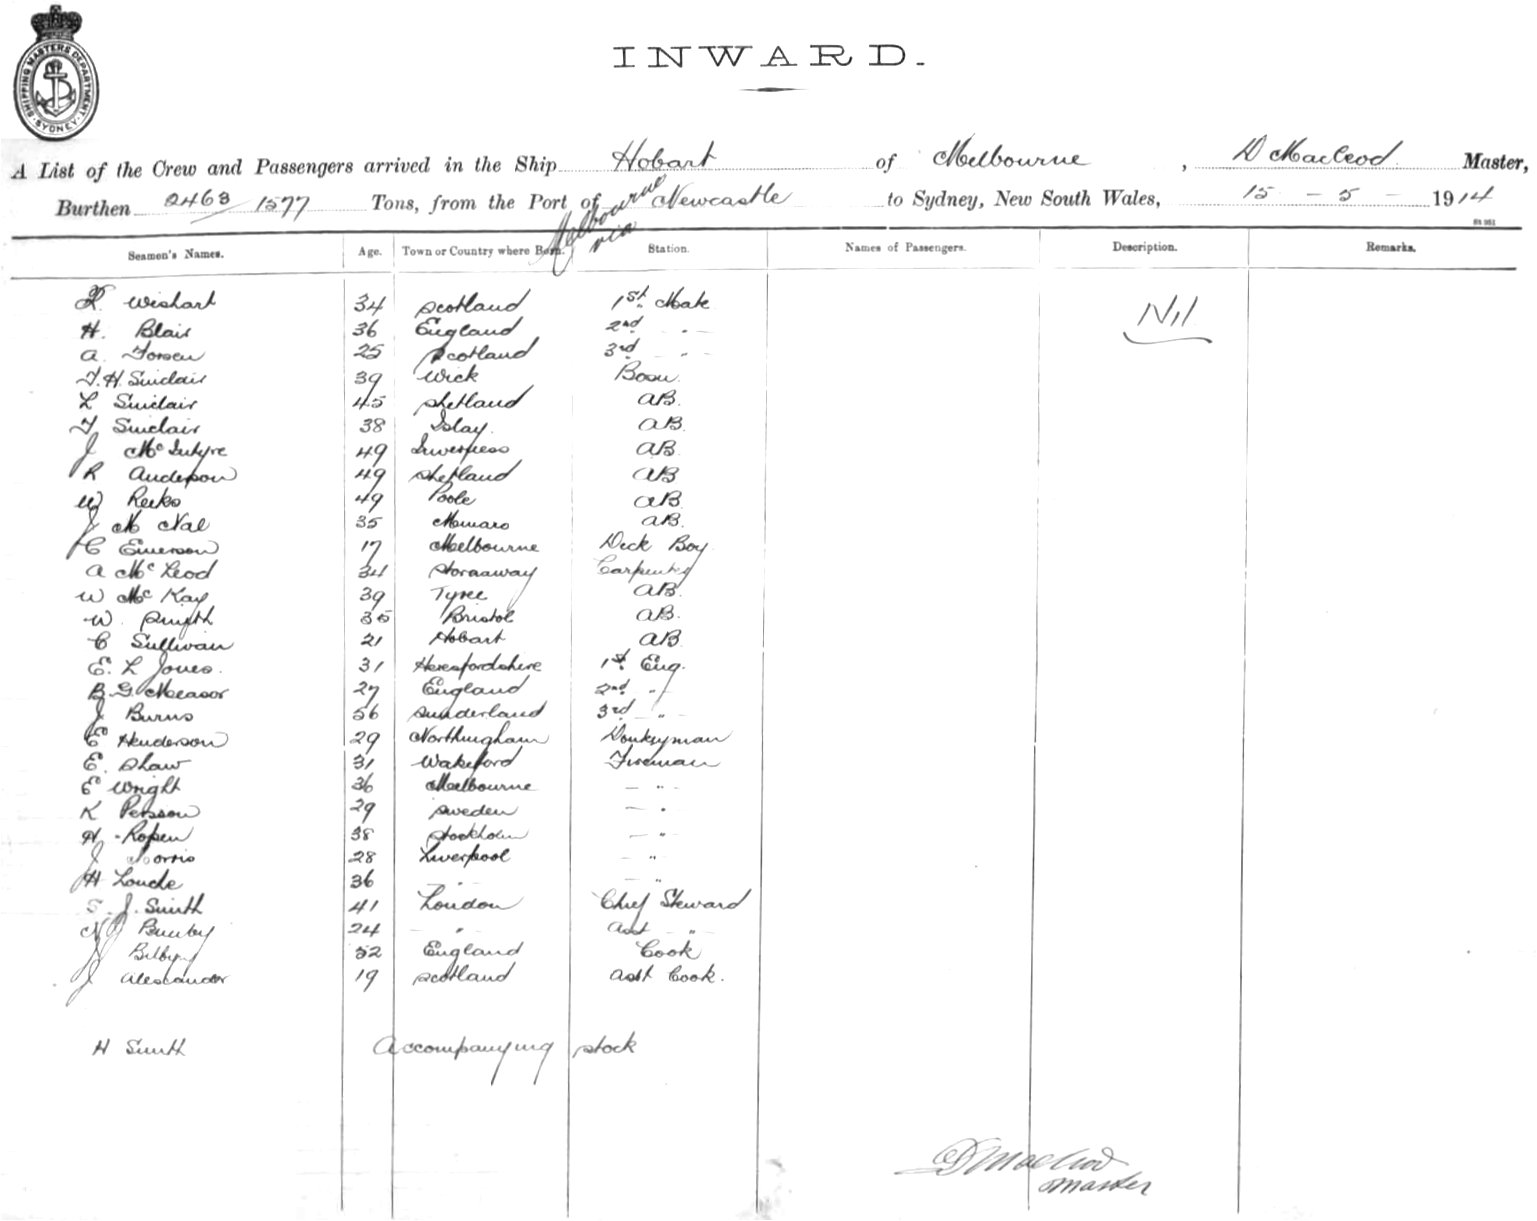 SHIPPING MASTERS DEPARTMENT
SYDNEY
INWARD.
A List of the Crew and Passengers arrived in the Ship Hobart of Melbourne, D Macleod Master,
Burthen 2463 / 1577 Tons, from the Port of Melbourne via Newcastle to Sydney, New South Wales, 15 - 5 - 1914
Seamen's Names. Age. Town or Country where Born. Station. Names of Passengers. Description. Remarks.
Wishart 34 Scotland 1st Mate Nil
H. Blair 36 England 2nd "
A. 25 Scotland 3rd "
T. H. Sinclair 39 Wick Bosn.
L Sinclair 45 Shetland AB.
T Sinclair 38 Islay. AB.
J McIntyre 49 Inverness AB.
R Anderson 49 Shetland AB
W Reeks 49 Poole AB.
J M Nal 35 AB.
C Emerson 17 Melbourne Deck Boy.
A McLeod 34 Stornaway Carpenter
W McKay 39 Tyree AB.
W. Smyth 35 Bristol AB.
C Sullivan 21 Hobart AB
E. L Jones. 31 Herefordshire 1st Eng.
B. G. Measor 27 England 2nd "
J Burns 56 Sunderland 3rd "
E Henderson 29 Northingham Donkyman
E. Shaw 31 Wakeford Fireman
E Wright 36 Melbourne "
K Persson 29 Sweden "
H. 38 Stockholm "
J Norris 28 Liverpool "
H 36 " "
S. J. Smith 41 London Chief Steward
24 " Asst "
J 52 England Cook
J Alexander 19 Scotland Asst Cook.
H Smith Accompanying stock
D Macleod
Master